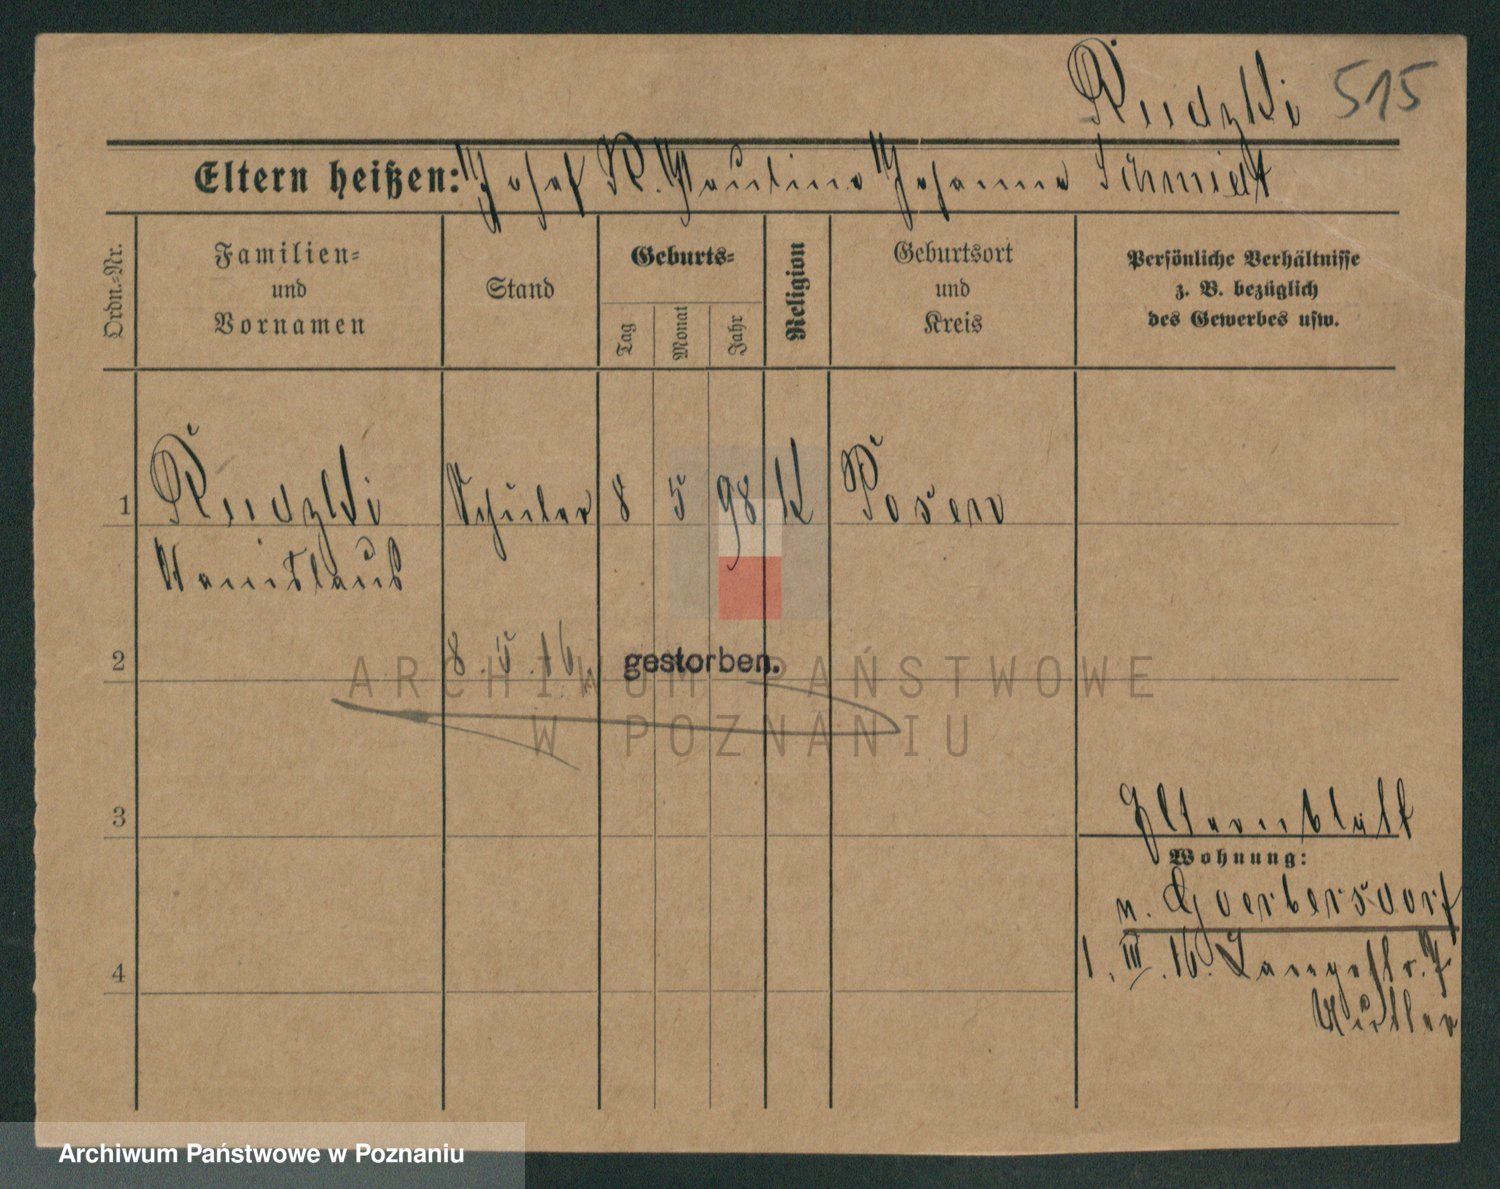 Rudzki 515
Eltern heißen: Josef R. Pauline Johanna Schmidt
Ordn.-Nr.
Familien-
und
Vornamen
Stand
Geburts-
Tag
Monat
Jahr
Religion
Geburtsort
und
Kreis
Persönliche Verhältnisse
z. B. bezüglich
des Gewerbes usw.
1 Rudzki Schüler 8 5 98 K Posen
Stanislaus
2 8. 5. 16. gestorben.
ARCHIWUM PAŃSTWOWE
W POZNANIU
3 Elternblatt
Wohnung:
n. Goerbersdorf
4 1. III. 16. Langestr. 7
Mutter
Archiwum Państwowe w Poznaniu